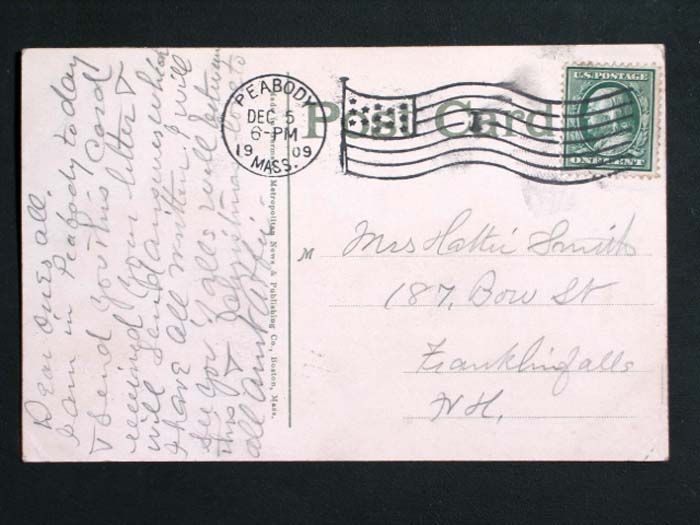 Dear ones all.
I am in Peabody to day
& Send you this Card
received your letter &
will Send answer which
I have all written, I will
See you all between
this &
all
PEABODY
DEC 5
6-PM
1909
MASS.
Post Card
U.S. POSTAGE
ONE CENT
Metropolitan News & Publishing Co., Boston, Mass.
M
Mrs Hattie Smith
187, Bow St
Franklin falls
N H,